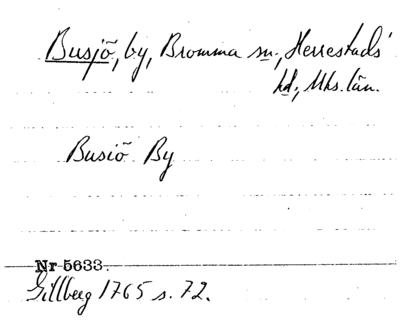 Busjö, by, Bromma sn, Herrestads
hd, Mhs. län.
Busiö By
Nr 5633.
Gillberg 1765 s. 72.